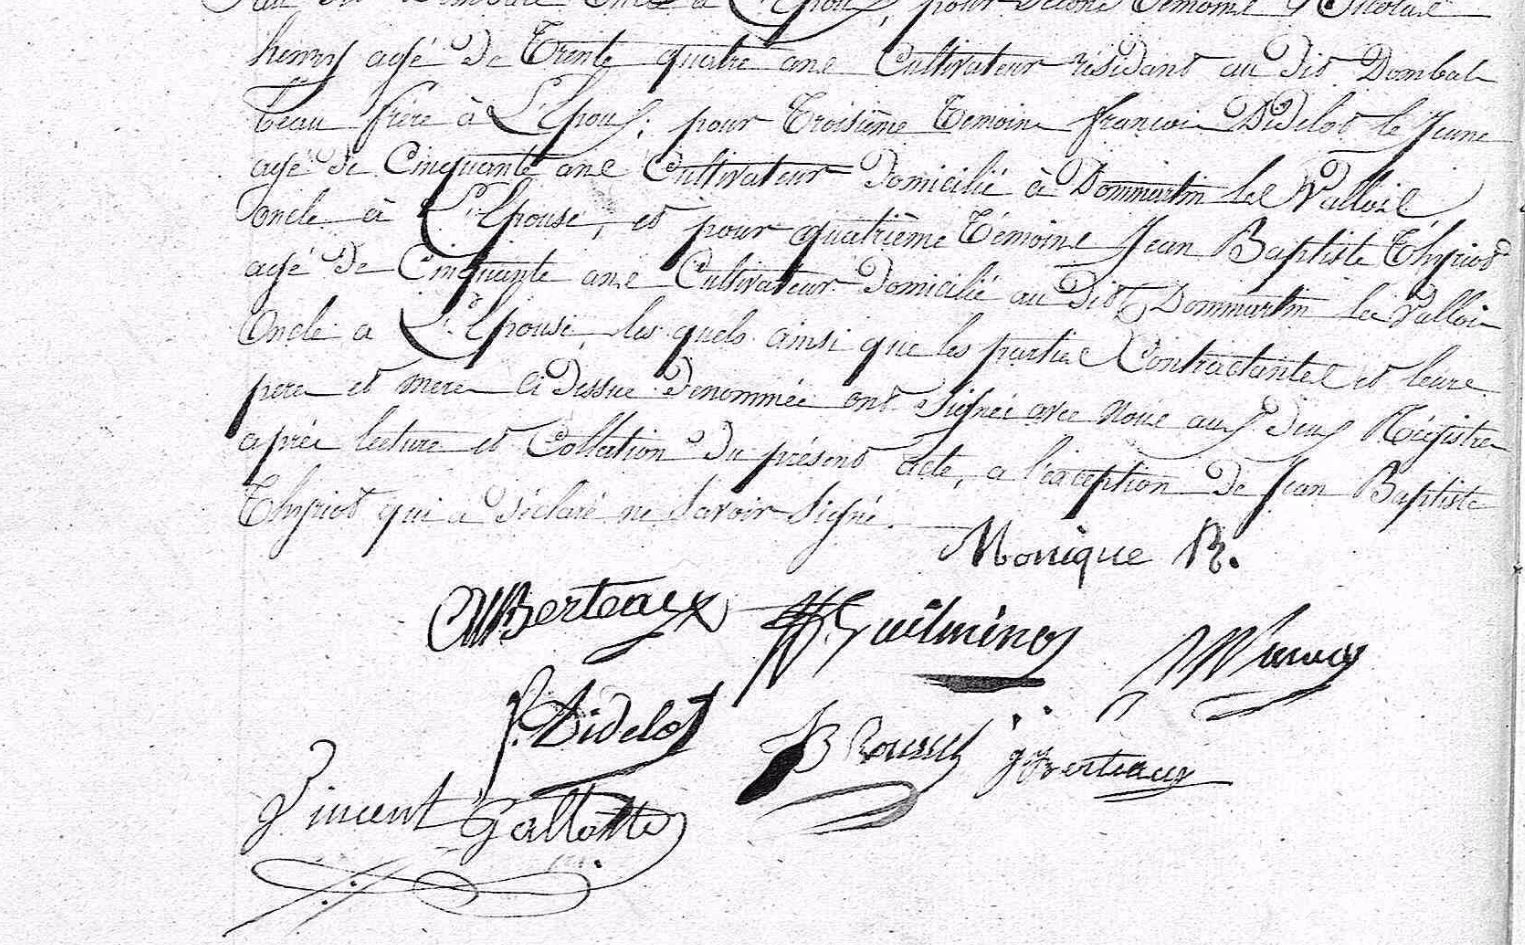 dit Dombale oncle à L'Epoux, pour second Témoins Nicolas
henry agé de Trente quatre ans Cultivateur résidant au dit Dombale
beau frère à L'Epoux; pour Troisième Témoins françois Didelot le Jeune
agé de Cinquante ans Cultivateur Domicilié à Dommartin les Vallois
oncle à L'Epouse, et pour quatrième Témoins Jean Baptiste Thyriot
agé de Cinquante ans Cultivateur Domicilié au Dit Dommartin les Vallois
Oncle a L'Epouse, les quels ainsi que les parties Contractantes et leurs
peres et meres ci Dessus Denommés ont Signés avec Nous aux deux Régistres
après lecture et Collation du présent acte, a l'exception de Jean Baptiste
Thyriot qui a déclaré ne Savoir Signé.
Monique R.
Berteaux Guilminot
F. Didelot
Berteaux
Vincent Gallotte